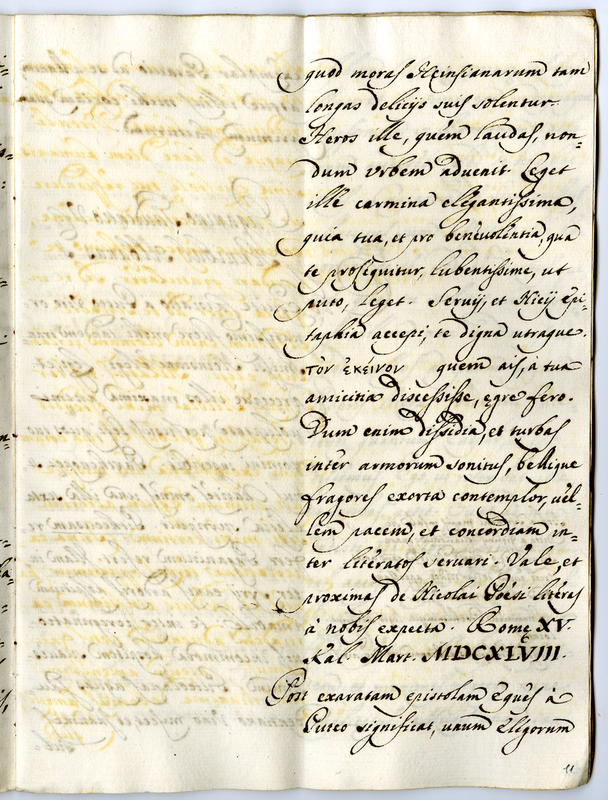 quod moras Heinsianarum tam
longas delicijs suis solentur.
Heros ille, quem laudas, non-
dum vrbem aduenit. Leget
ille carmina elegantissima,
quia tua, et pro beneuolentia, qua
te prosequitur, lubentissime, ut
puto, leget. Seruij, et Nicij Epi-
taphia accepi, te digna utraque.
τὸν ἐκεῖνον quem ais, à tua
amicitia discessisse, ęgre fero.
Dum enim dissidia, et turbas
inter armorum sonitus, bellique
fragores exorta contemplor, uel-
lem pacem, et concordiam in-
ter literatos seruari. Vale, et
proximas de Nicolai literis
à nobis expecta. Romę XV.
Kal. Mart. MDCXLVIII.
Post exaratam epistolam Eques à
Puteo significat, unum Elegorum
11